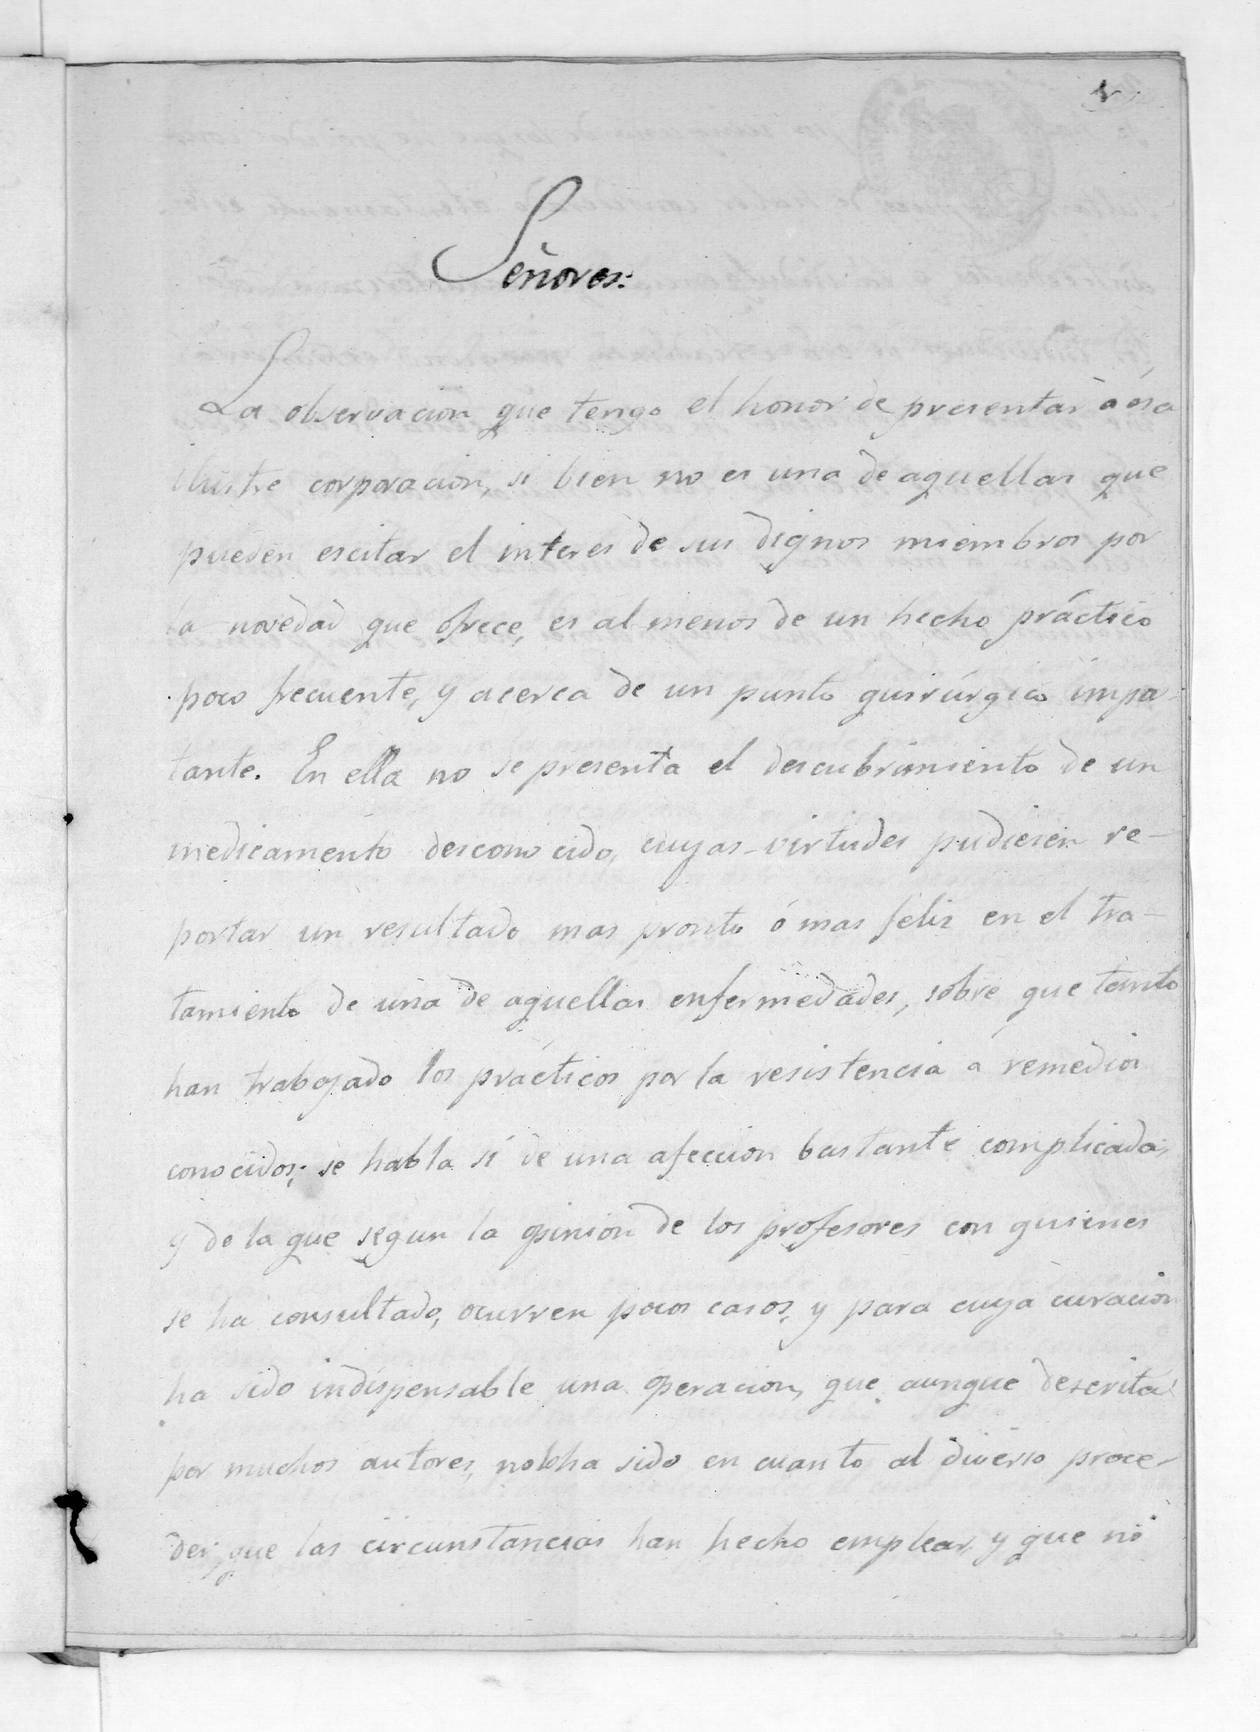 Señores:
La observacion que tengo el honor de presentar à esa
ilustre corporacion, si bien no es una de aquellas que
pueden escitar el interes de sus dignos miembros por
la novedad que ofrece, es al menos de un hecho práctico
poco frecuente, y acerca de un punto quirúrgico impor-
tante. En ella no se presenta el descubrimiento de un
medicamento desconocido, cuyas virtudes pudiesen re-
portar un resultado mas pronto ó mas feliz en el tra-
tamiento de una de aquellas enfermedades, sobre que tanto
han trabajado los prácticos por la resistencia a remedios
conocidos; se habla sí de una afeccion bastante complicada,
y de la que segun la opinion de los profesores con quienes
se ha consultado, ocurren pocos casos, y para cuya curacion
ha sido indispensable una operacion, que aunque descrita
por muchos autores, no lo ha sido en cuanto al diverso proce-
der, que las circunstancias han hecho emplear, y que no